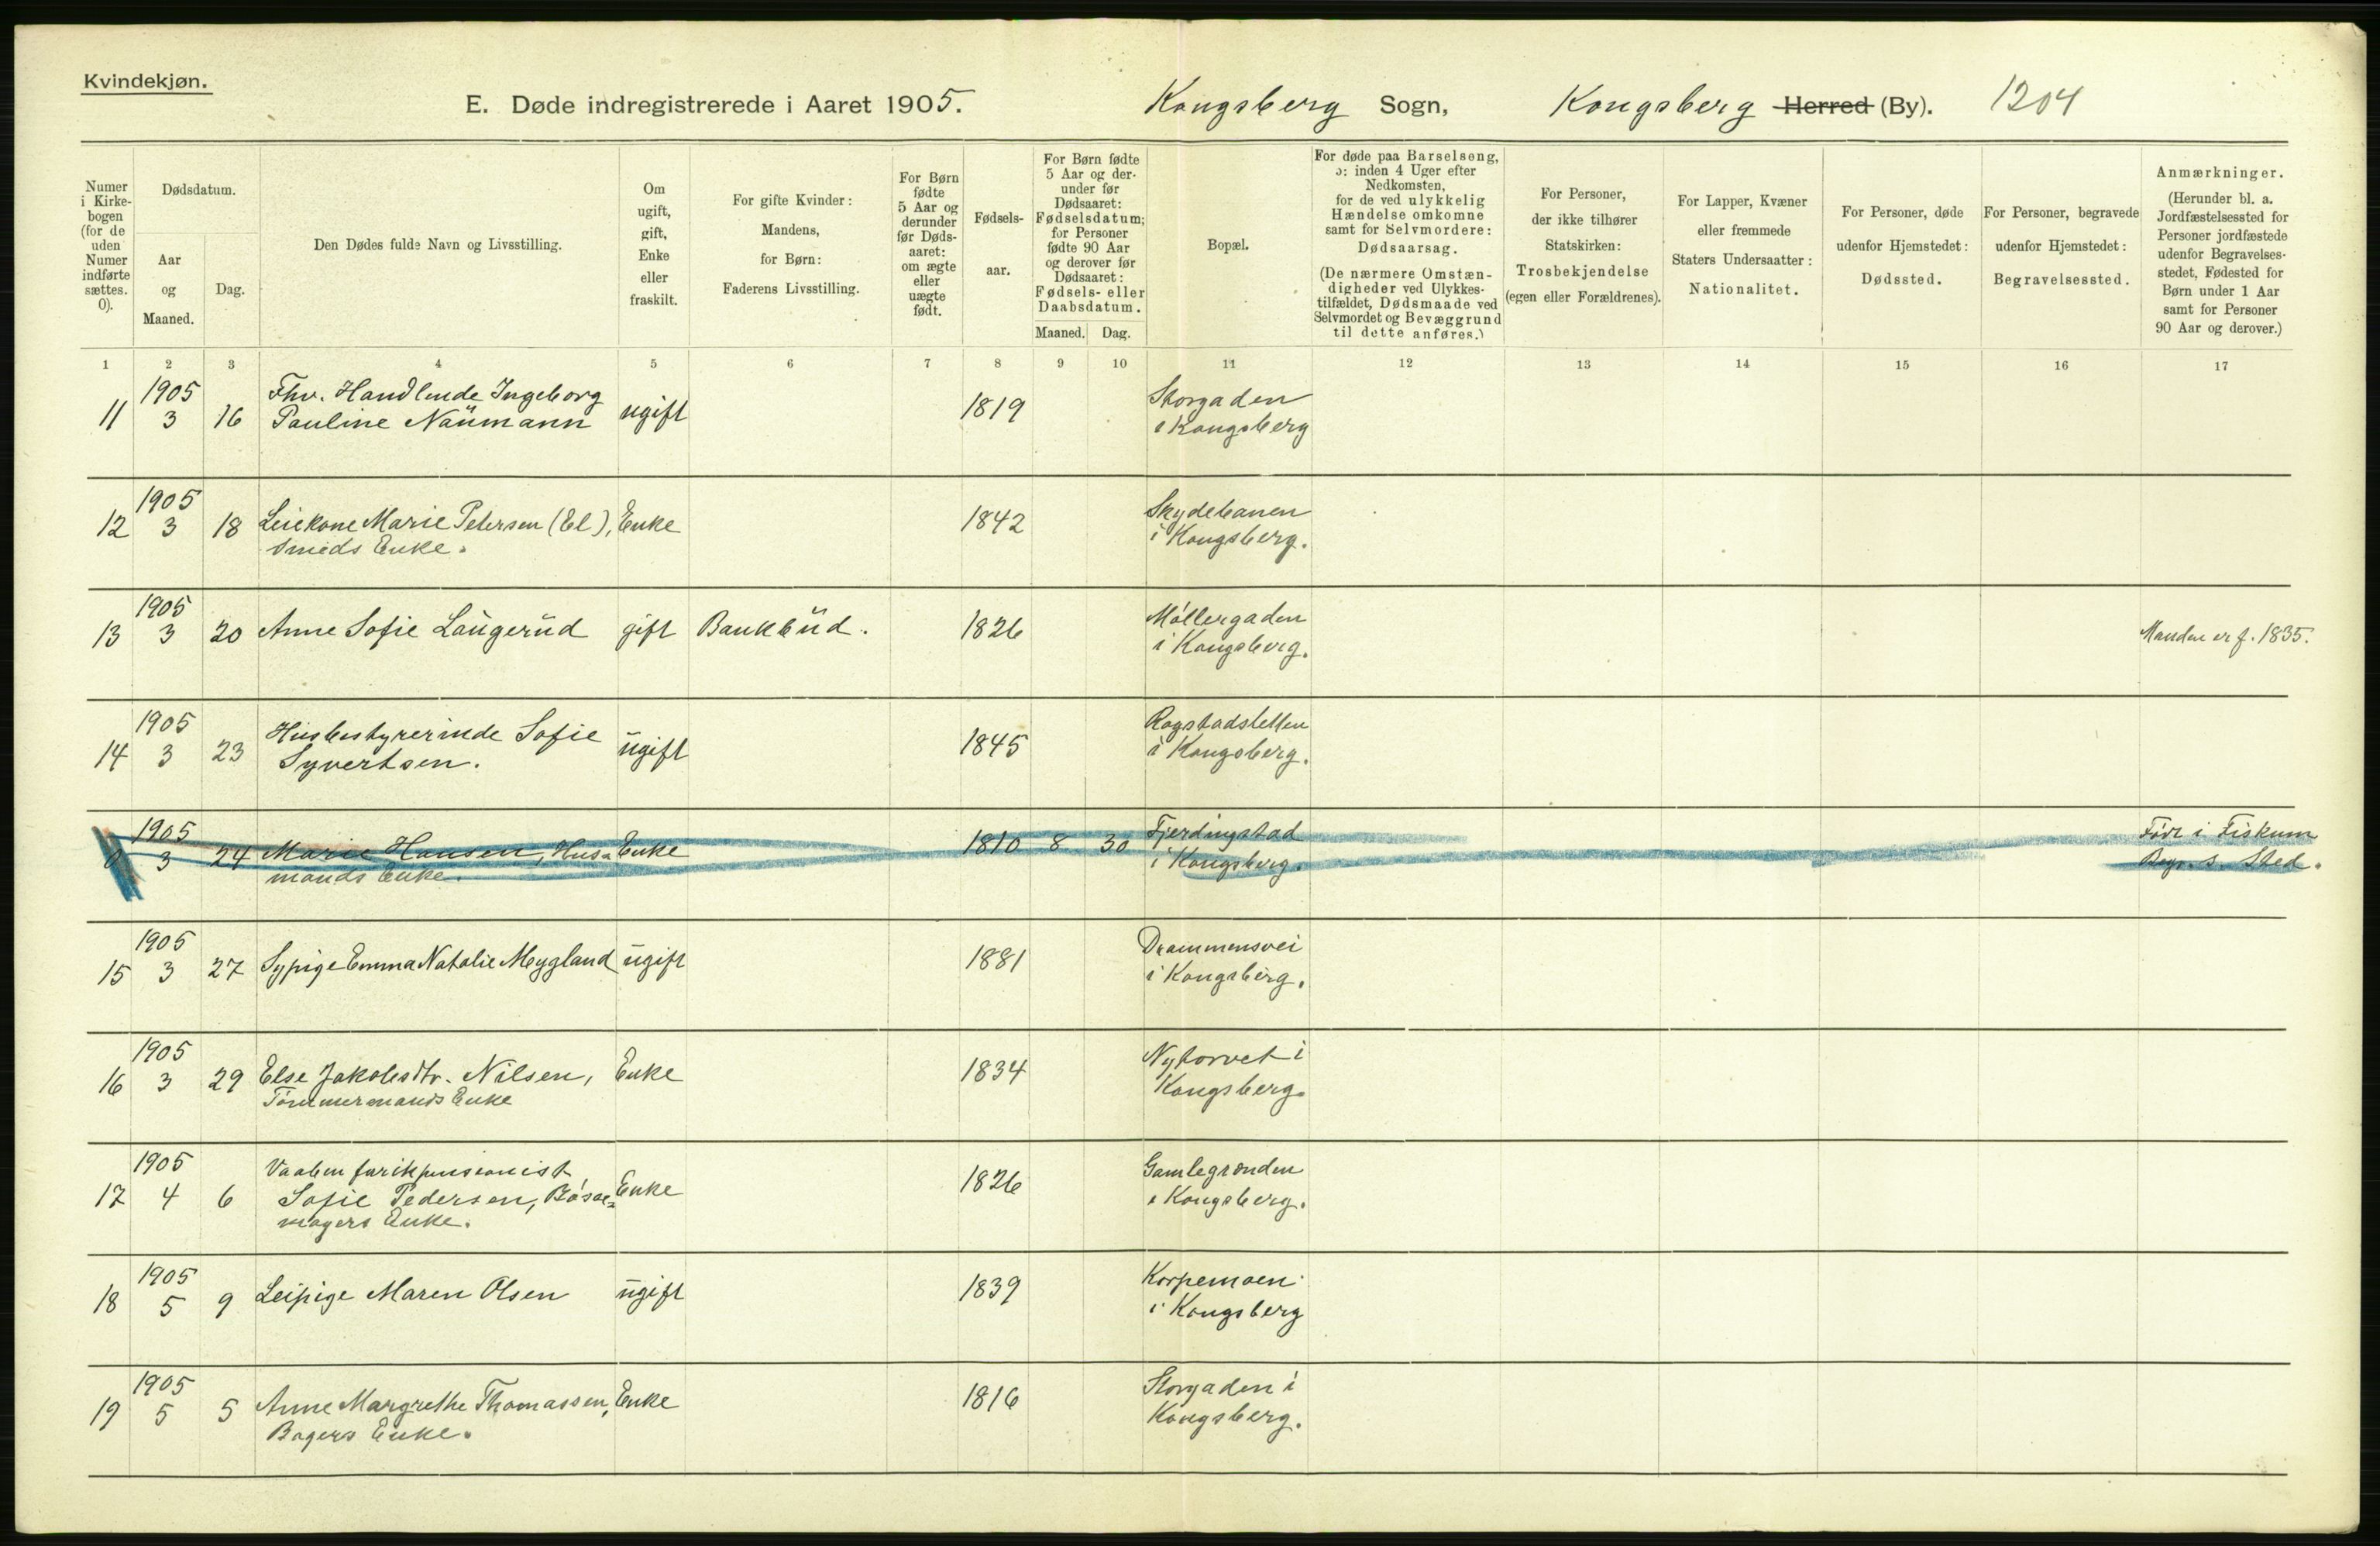 Kvindekjøn.
E. Døde indregistrerede i Aaret 1905. Kongsberg Sogn, Kongsberg Herred (By). 1204
Numer i Kirkebogen (for de uden Numer indførte sættes. 0).
Dødsdatum.
Aar og Maaned.
Dag.
Den Dødes fulde Navn og Livsstilling.
Om ugift, gift, Enke eller fraskilt.
For gifte Kvinder: Mandens, for Børn: Faderens Livsstilling.
For Børn fødte 5 Aar og derunder før Dødsaaret: om ægte eller uægte født.
Fødselsaar.
For Børn fødte 5 Aar og derunder før Dødsaaret: Fødselsdatum; for Personer fødte 90 Aar og derover før Dødsaaret: Fødsels- eller Daabsdatum.
Maaned. Dag.
Bopæl.
For døde paa Barselseng, ɔ: inden 4 Uger efter Nedkomsten, for de ved ulykkelig Hændelse omkomne samt for Selvmordere: Dødsaarsag.
(De nærmere Omstændigheder ved Ulykkestilfældet, Dødsmaade ved Selvmordet og Bevæggrund til dette anføres.)
For Personer, der ikke tilhører Statskirken: Trosbekjendelse (egen eller Forældrenes).
For Lapper, Kvæner eller fremmede Staters Undersaatter: Nationalitet.
For Personer, døde udenfor Hjemstedet: Dødssted.
For Personer, begravede udenfor Hjemstedet: Begravelsessted.
Anmærkninger.
(Herunder bl. a. Jordfæstelsessted for Personer jordfæstede udenfor Begravelsesstedet, Fødested for Børn under 1 Aar samt for Personer 90 Aar og derover.)
1 2 3 4 5 6 7 8 9 10 11 12 13 14 15 16 17
1905 Fhv. Handlende Ingeborg Storgaden
11 3 16 Pauline Naumann ugift 1819 i Kongsberg
1905 Skydebanen
12 3 18 Leiekone Marie Petersen (El), Enke 1842 i Kongsberg.
Smeds Enke.
1905 Møllergaden
13 3 20 Anne Sofie Laugerud gift Bankbud. 1826 i Kongsberg. Manden er f. 1835.
1905 Husbestyrerinde Sofie Rogstadsletten
14 3 23 Syvertsen. ugift 1845 i Kongsberg.
1905 Fjerdingstad Født i Fiskum
0 3 24 Marie Hansen, Hus= Enke 1810 8 30 i Kongsberg. Begr. s. Sted.
mands Enke.
1905 Drammensvei
15 3 27 Sypige Emma Natalie Mygland ugift 1881 i Kongsberg.
1905 Nytorvet i
16 3 29 Else Jakobsdtr. Nilsen, Enke 1834 Kongsberg.
Tømmermands Enke
1905 Vaabenfabrikpensionist Gamlegrønden
17 4 6 Sofie Pedersen, Bøsse= Enke 1826 i Kongsberg.
magers Enke.
1905 Korpemoen
18 5 9 Leipige Maren Olsen ugift 1839 i Kongsberg
1905 Storgaden i
19 5 5 Anne Margrethe Thomassen, Enke 1816 Kongsberg.
Bagers Enke.